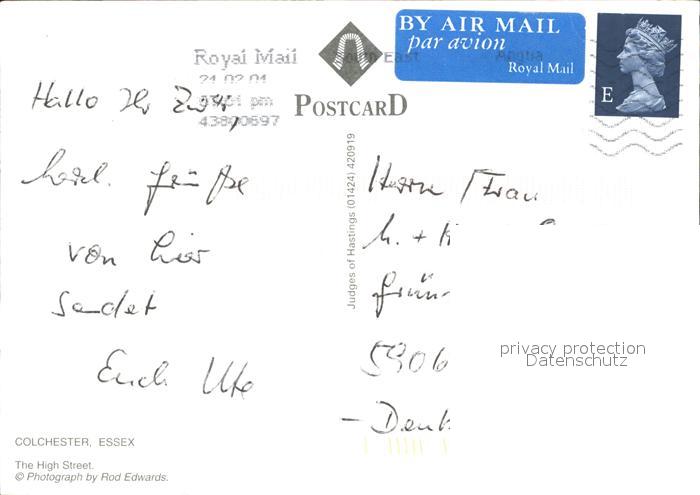 BY AIR MAIL
par avion
Royal Mail
E
Royal Mail
South East Anglia
21 02 01
pm
43800697
POSTCARD
Hallo Ihr Zwei,
herzl. Grüße
von hier
sendet
Euch Ute
Judges of Hastings (01424) 420919
Herrn / Frau
h. + K
Grün-
5906
privacy protection
Datenschutz
COLCHESTER, ESSEX
The High Street.
© Photograph by Rod Edwards.